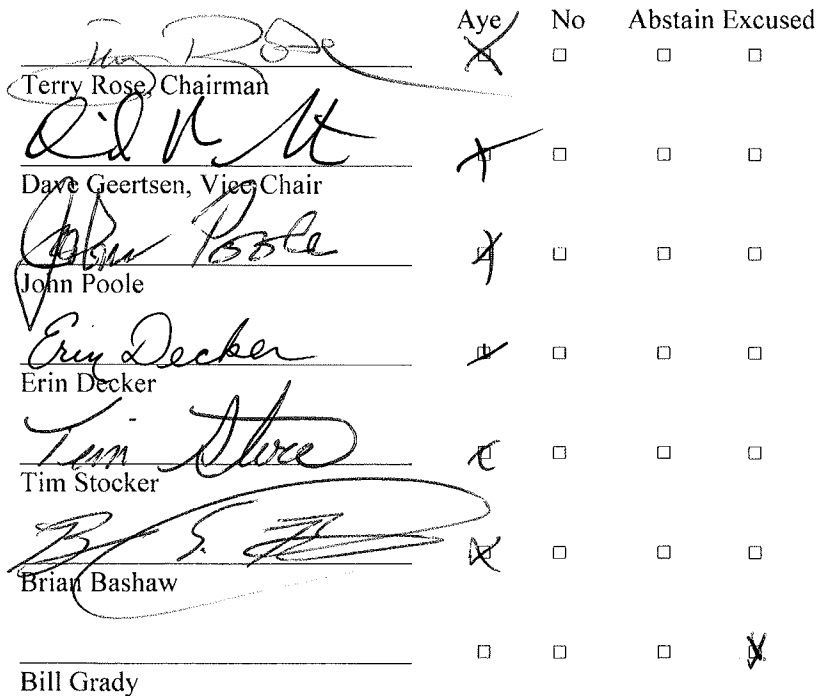 Aye No Abstain Excused
Terry Rose
Terry Rose, Chairman
Dave Geertsen, Vice Chair
John Poole
John Poole
Erin Decker
Erin Decker
Tim
Tim Stocker
Brian Bashaw
Bill Grady